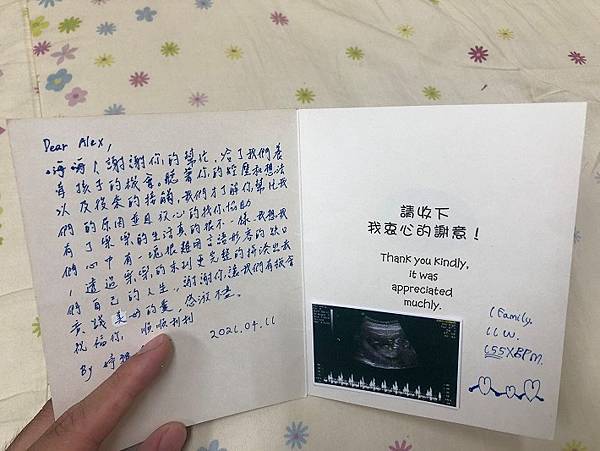 Dear Alex,
嗨嗨～謝謝你的幫忙，給了我們養
育孩子的機會。聽著你的經歷和想法
以及後來的接觸，我們才了解你幫忙我
們的原因並且放心的找你協助
有了樂樂的生活真的很不一樣，我想我
們心中有一塊很難用言語形容的缺口
，透過樂樂的來到更完整的拼湊出我
們自己的人生，謝謝你讓我們有機會
實踐美好的愛，感激不盡。
祝福你，順順利利
By
2021.04.11
請收下
我衷心的謝意！
Thank you kindly,
it was
appreciated
muchly.
1 Family.
11W.
155XBPM.